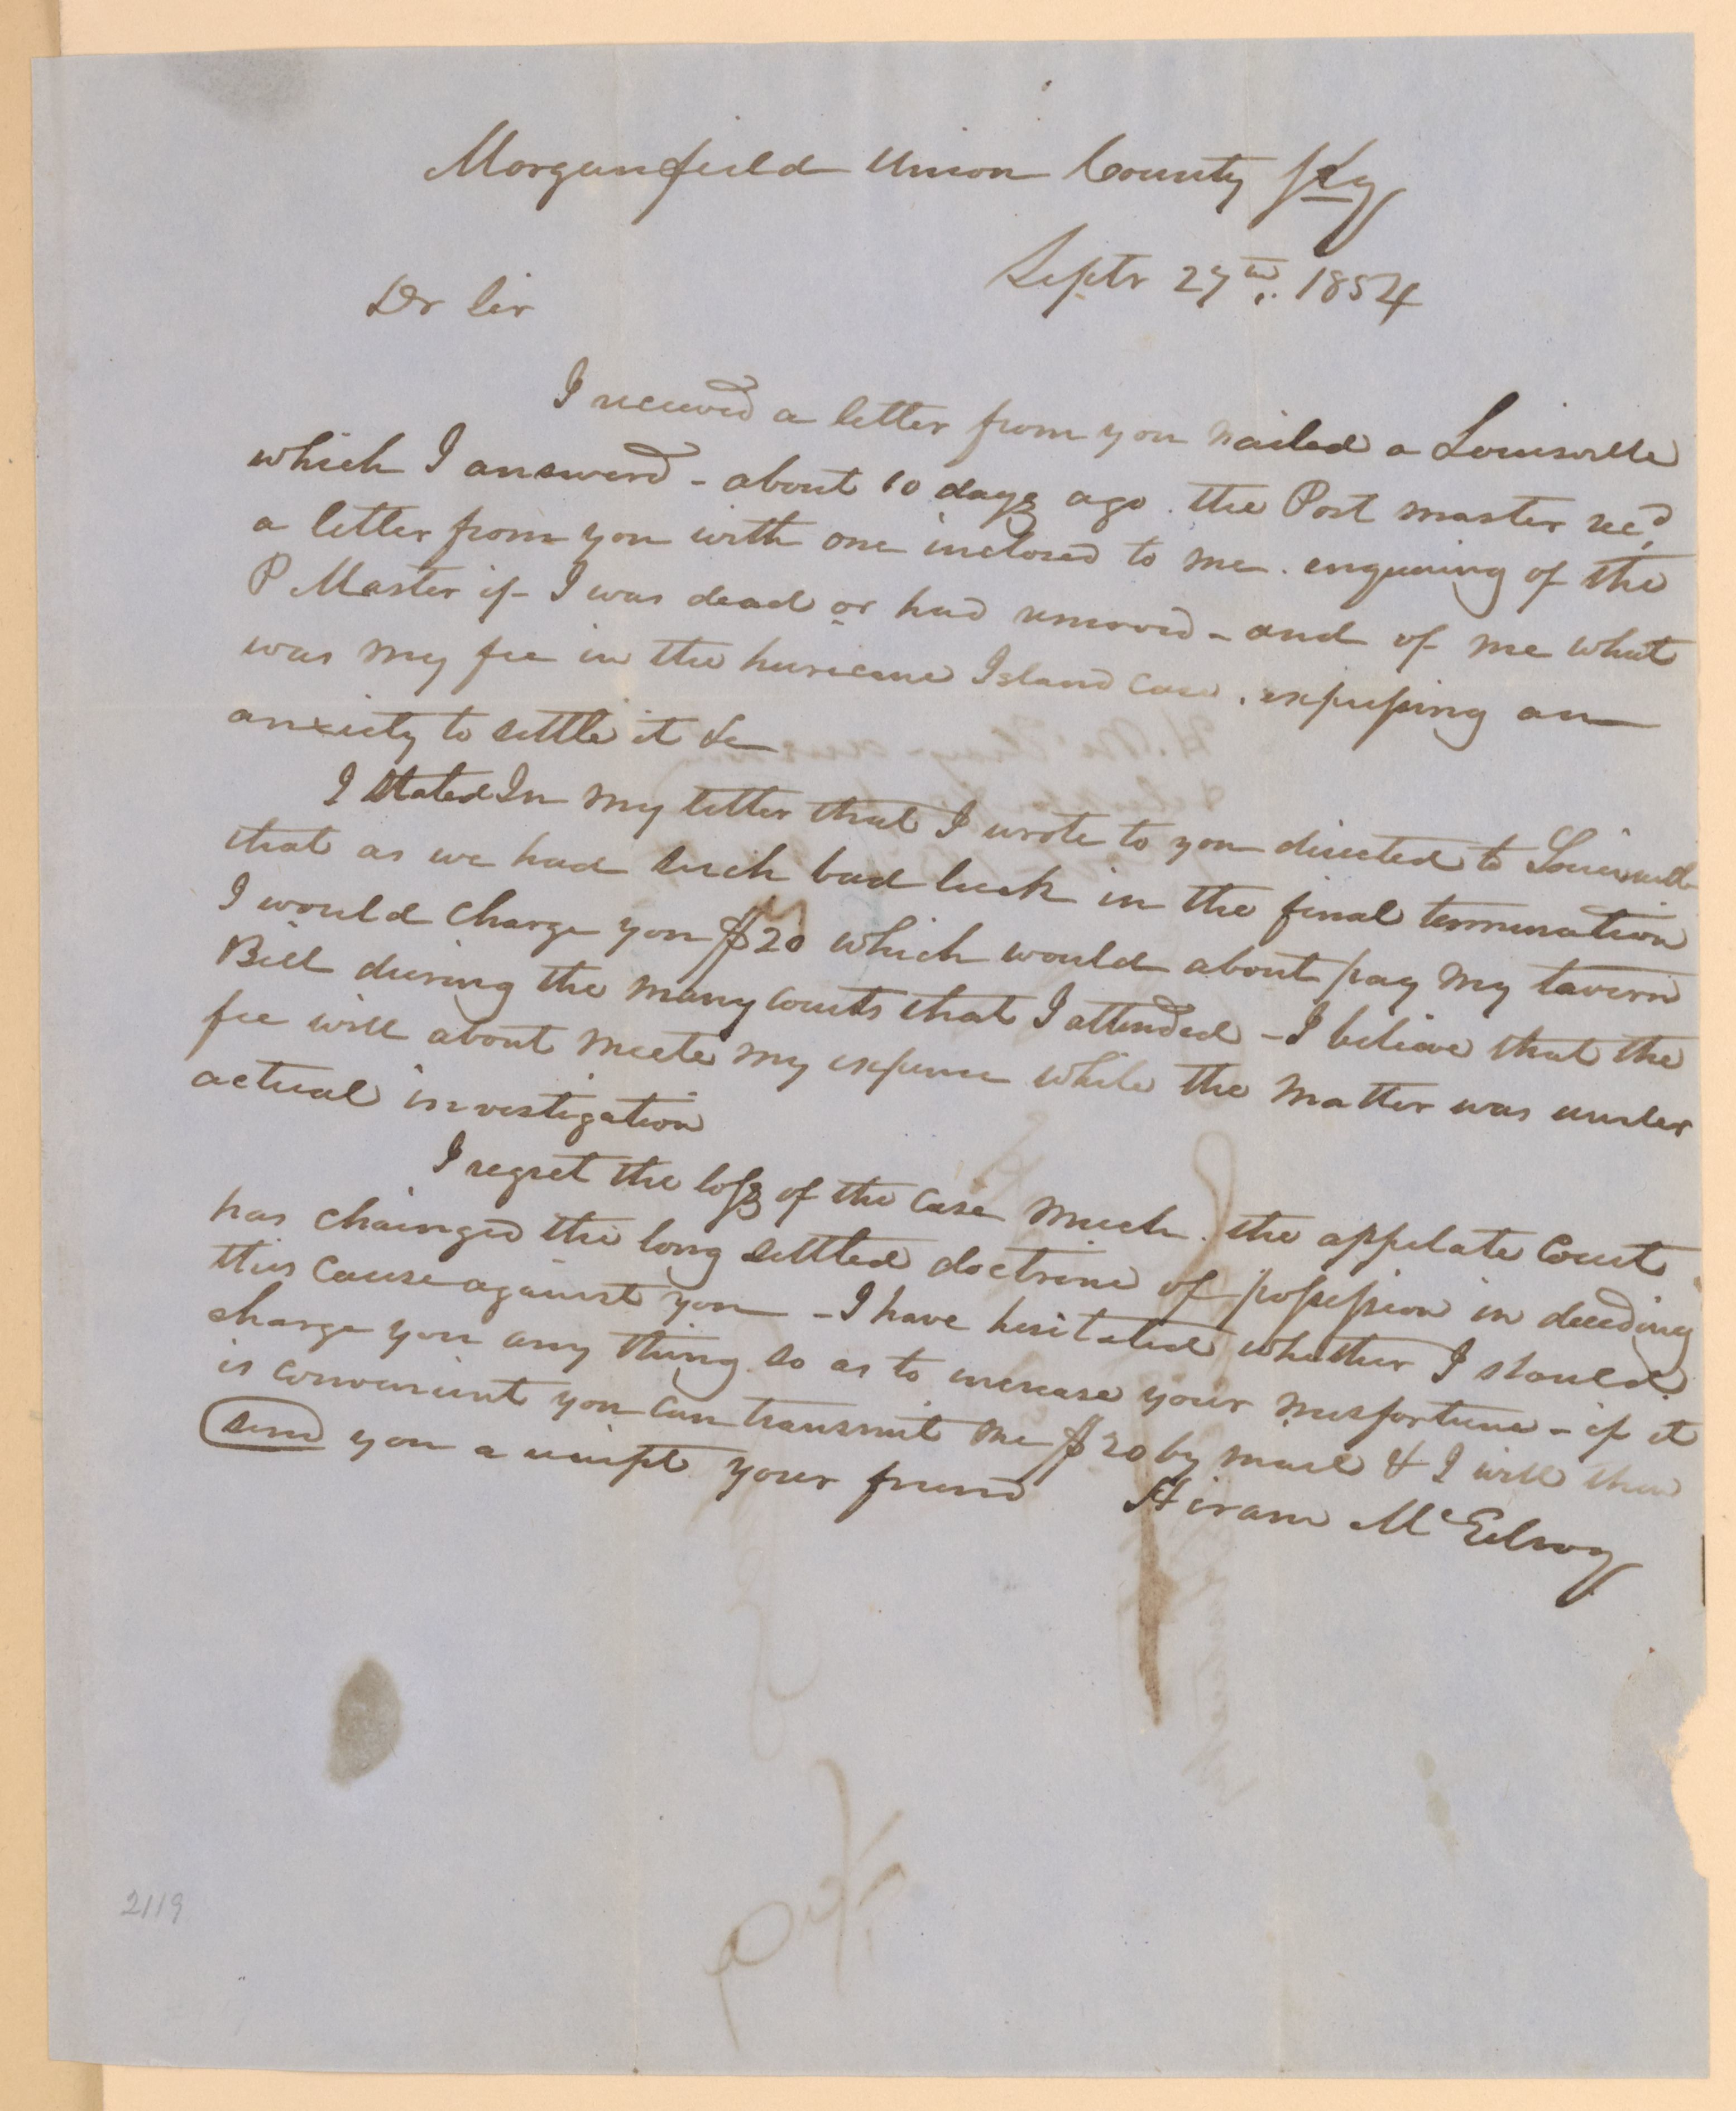 Morganfield Union County Ky
Septr 27th. 1854
Dr Sir
I received a letter from you mailed a Louisville
which I answerd - about 10 days ago. the Post master recd.
a letter from you with one inclosed to me. enquiring of the
P Master if I was dead or had removed - and of me what
was my fee in the huricane Island case. expressing an
anxiety to settle it &c
I Stated In my letter that I wrote to you directed to Louisville
that as we had such bad luck in the final termination
I would charge you $20 which would about pay my tavern
Bill during the many courts that I attended - I believe that the
fee will about meete my expense while the matter was under
actual investigation
I regret the loss of the case much. the appelate Court
has chainged the long settled doctrine of possession in deciding
this cause against you - I have hesitated whether I should
charge you any thing so as to increase your misfortune - if it
is convenient you can transmit me $20 by mail & I will then
send you a reicipt your friend Hiram McElroy
2119